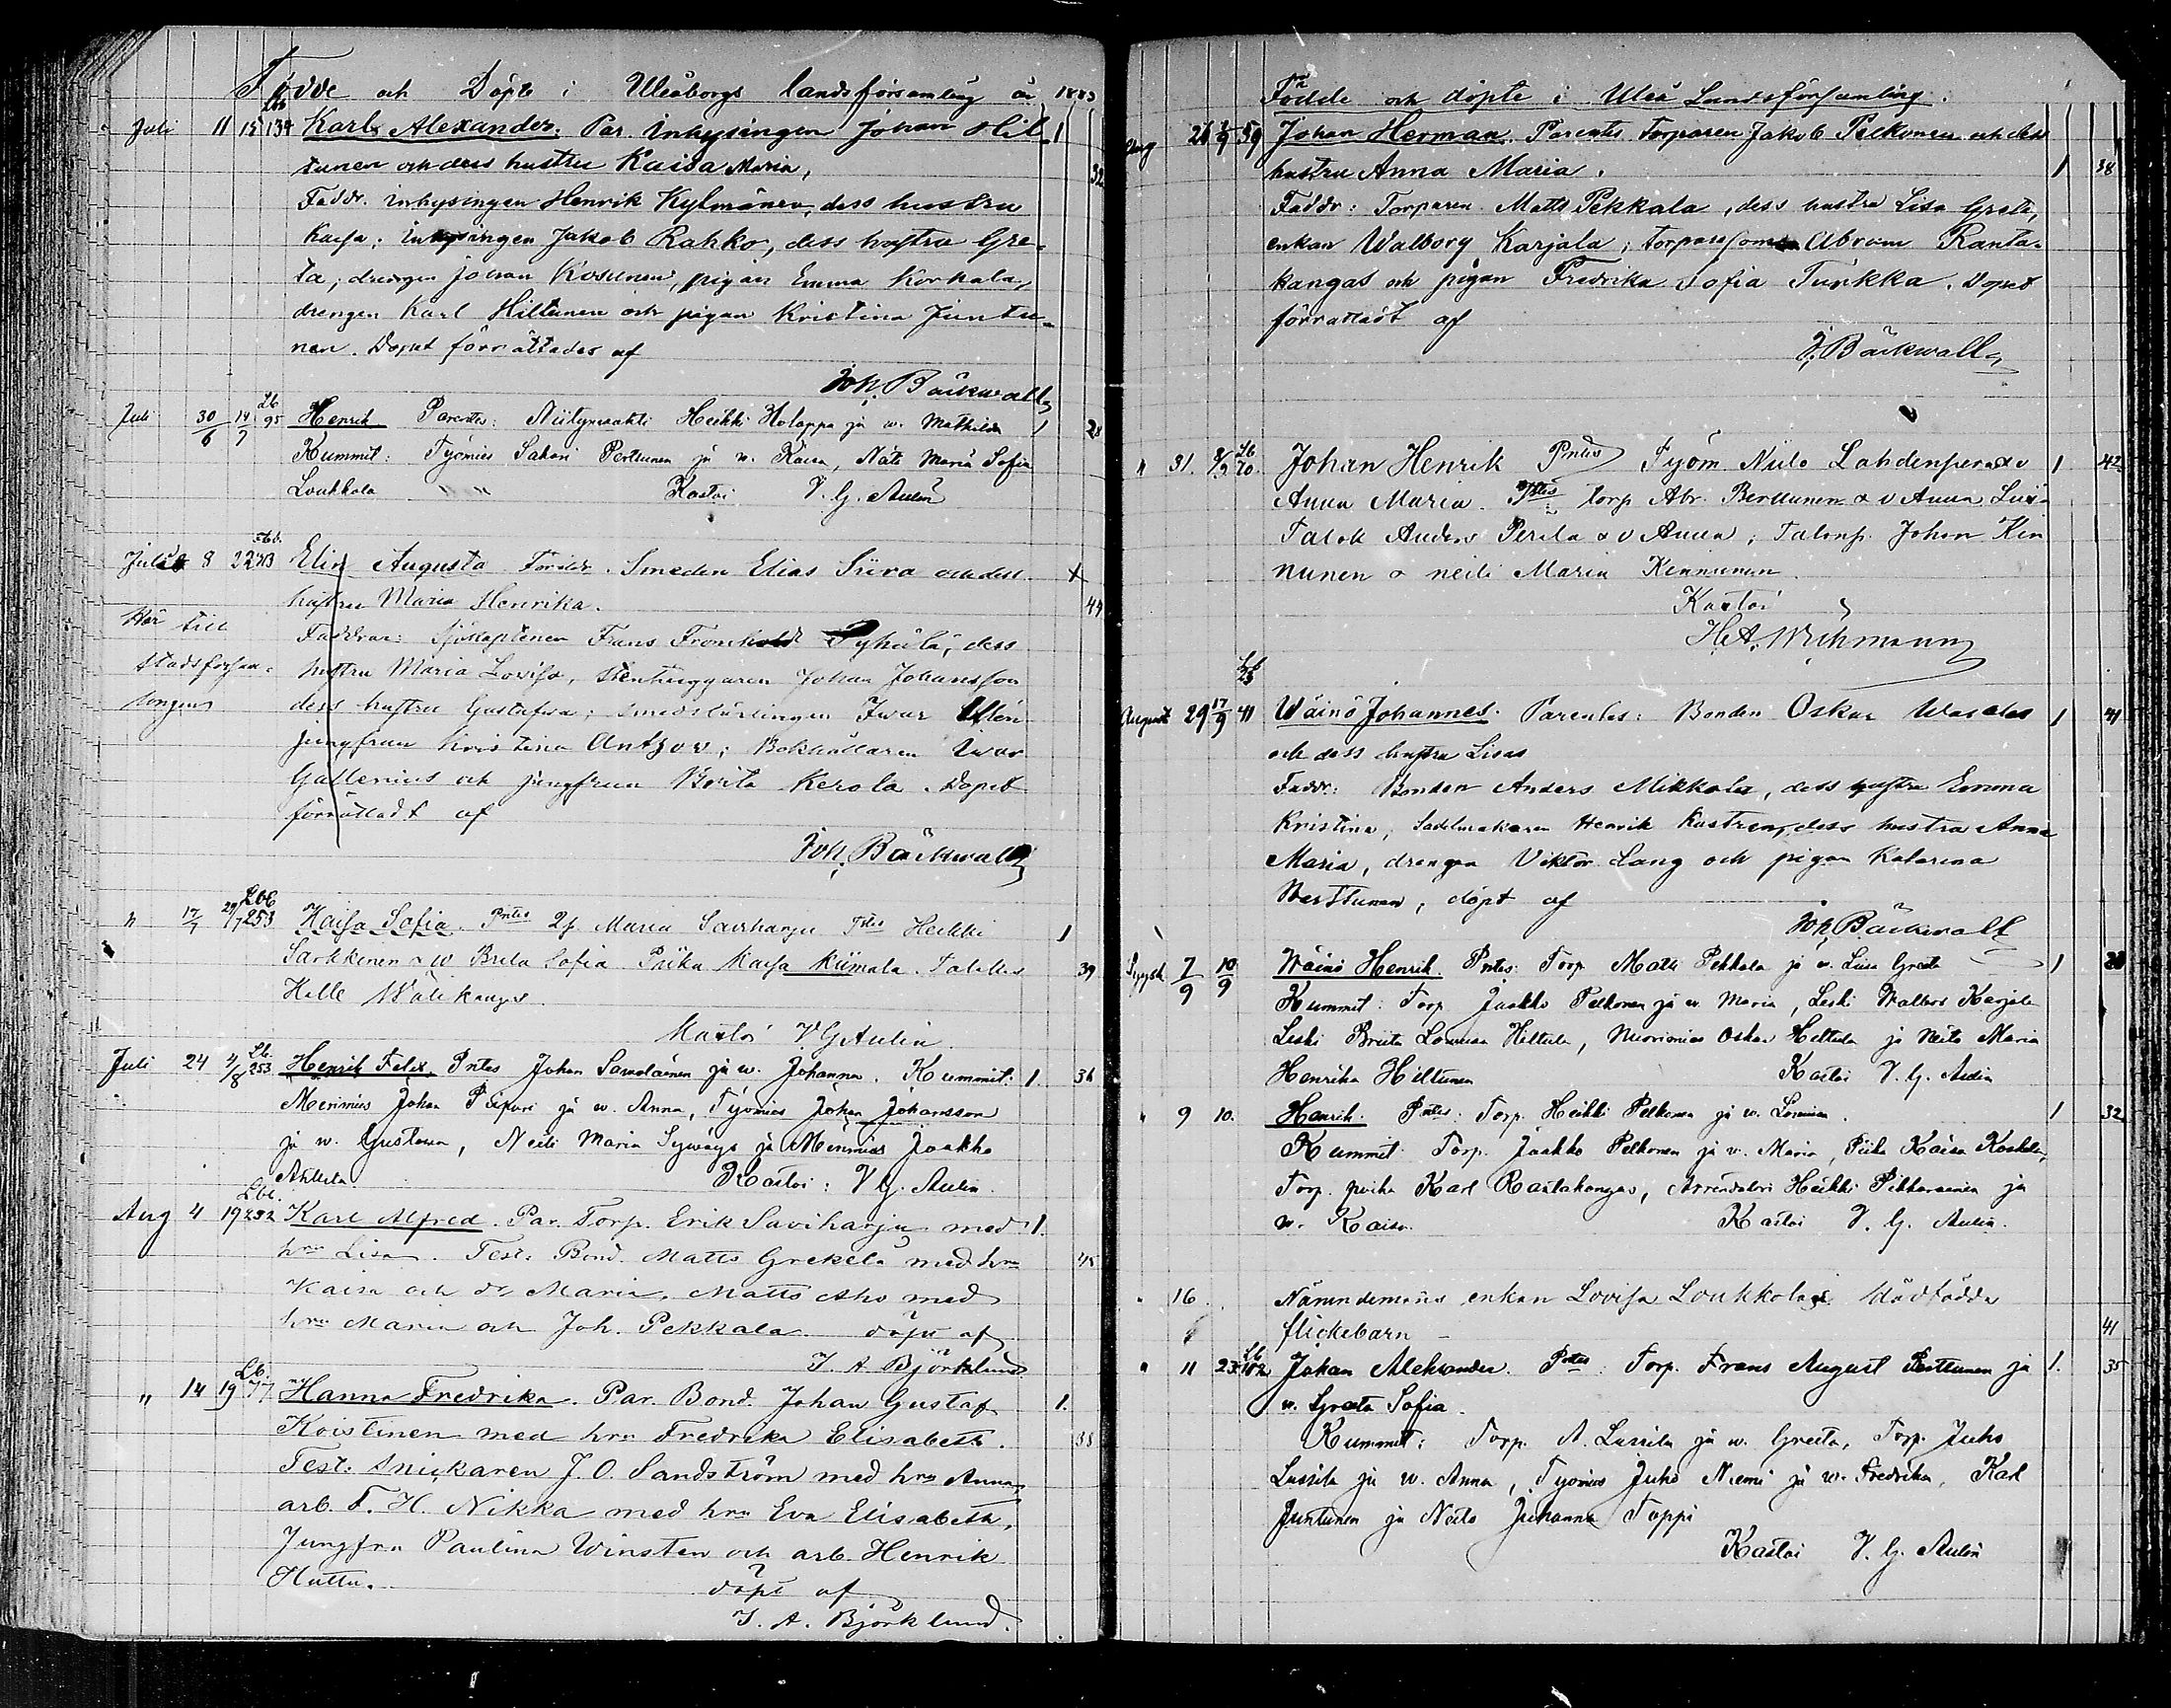 Födde och Döpte i Uleåborgs landsförsamling år 1883
Juli 11 15 134 Karl Alexander. Par. Inhysingen Johan Hil- 1
tunen och dess hustru Kaisa Maria, 32
Faddr. inhysingen Henrik Kylmänen, dess hustru
Kaisa; inhysingen Jakob Rahko, dess hustru Gre-
ta; drengen Johan Kosunen, pigan Emma Korkala,
drengen Karl Hiltunen och pigan Kristina Juntu-
nen. Dopet förrättades af
Joh. Bäckwall
Juli 30/6 14/7 Lb 95 Henrik Parentes: Heikki Holappa ja w. Mathilda 1 28
Kummit: Työmies Sakari Perttunen ja w. Kaisa, Näiti Maria Sofia
Loukkola " " Kastoi V. G. Aulin
Juli 8 22 Elin Augusta Föräldr. Smeden Elias Siira och dess x
hustru Maria Henrika. 44
Hör till
Faddrar: Sjökaptenen Frans Pyhälä, dess
stadsförsam-
hustru Maria Lovisa, stenhuggaren Johan Johansson
lingen
dess hustru Gustafva; smedslärlingen Iwar
jungfrun Kristina Antzow; Bokhållaren Iwar
Gallenius och jungfrun Brita Kerola. Dopet
förrättadt af
Joh. Bäckwall
" 17/7 29/7 Lbb 253 Kaisa Sofia. Pntes Maria Saviharju Ttes Heikki 1
Sarkkinen & w Brita Sofia Piika Kaisa Kiimala. 39
Wälikangas.
Kastoi V G Aulin.
Juli 24 4/8 Lb. 253 Henrik Felix. Pntes Johan Savolainen ja w. Johanna. Kummit: 1. 36
Merimies Johan Piipari ja w. Anna, Työmies Johan Johansson
ja w. Gustawa, Neiti Maria ja Merimies Jaakko
Ahlleta. Kastoi: V. G. Aulin.
Aug 4 19 Lbb. 232 Karl Alfred. Par. Torp. Erik Saviharju med 1.
hru Lisa. Test: Bond. Matts Grekelä med hru 45
Kaisa och dr Maria, Matts Aho med
hru Maria och Joh. Pekkala. döpt af
J. A. Björklund
" 14 19 Lb. 77 Hanna Fredrika. Par. Bond. Johan Gustaf 1.
Koistinen med hru Fredrika Elisabeth. 38
Test: Snickaren J. O. Sandström med hru Anna,
arb. F. H. Nikka med hru Eva Elisabeth,
Jungfru Paulina Winsten och arb. Henrik
Huttu. döpt af
J. A. Björklund.
Födde och döpte i Uleå Landsförsamling.
Aug 26 2/9 59 Johan Herman. Parentes. Torparen Jakob Pelkonen och dess
hustru Anna Maria. 1 38
Faddr: Torparen Matts Pekkala, dess hustru Lisa Greta,
enkan Walborg Karjala; torparesonen Abram Ranta-
kangas och pigan Fredrika Sofia Turkka. Dopet
förrättadt af
J. Bäckwall
" 31. 8/9 Lb 70. Johan Henrik Pntes Työm. Niilo Lahdenperä & v 1 42
Anna Maria. Ttes: Torp Abr. Perttunen & v Anna Liisa
Talok Anders Perila & v Anna, Talonp. Johan Kin
nunen & neiti Maria Kinnunen.
Kastoi
H. A. Wichmann
August 29 17/9 41 Wäinö Johannes. Parentes: Bonden Oskar 1 41
och dess hustru Lisa
Faddr: Bonden Anders Mikkola, dess hustru Emma
Kristina, Sadelmakaren Henrik Kastren, dess hustru Anna
Maria, drengen Viktor Lang och pigan Katarina
Werttunen, döpt af
Joh. Bäckwall
Syysk 7/9 10/9 Wäinö Henrik. Pntes: Torp Matti Pekkala ja w. Liisa Greeta 1 28
Kummit: Torp Jaakko Pelkonen ja w Maria, Leski Walbor Karjala
Leski Briita Lowisa Hiltula, Nuorimies Oskar Hiltula ja Neito Maria
Henrika Hiltunen Kastoi V. G. Aulin
" 9 10. Henrik. Pntes: Torp. Heikki Pelkonen ja w. Lowisa. 1 32
Kummit: Torp. Jaakko Pelkonen ja w. Maria, Piika Kaisa Koskela,
Torp. poika Karl Rantakangas, Arrendatori Heikki Pikkarainen ja
w. Kaisa. Kastoi V. G. Aulin.
" 16. enkan Lovisa Loukkolas dödfödda
flickebarn 41
" 11 23 Lb 102 Johan Aleksander. Pntes: Torp. Frans August Perttunen ja 1. 35
w. Greta Sofia.
Kummit: Torp. A. Lassila ja w. Greeta, Torp. Juho
Lassila ja w. Anna, Työmies Juho Niemi ja w. Fredrika, Karl
Juntunen ja Neito Johanna Toppi
Kastoi V. G. Aulin